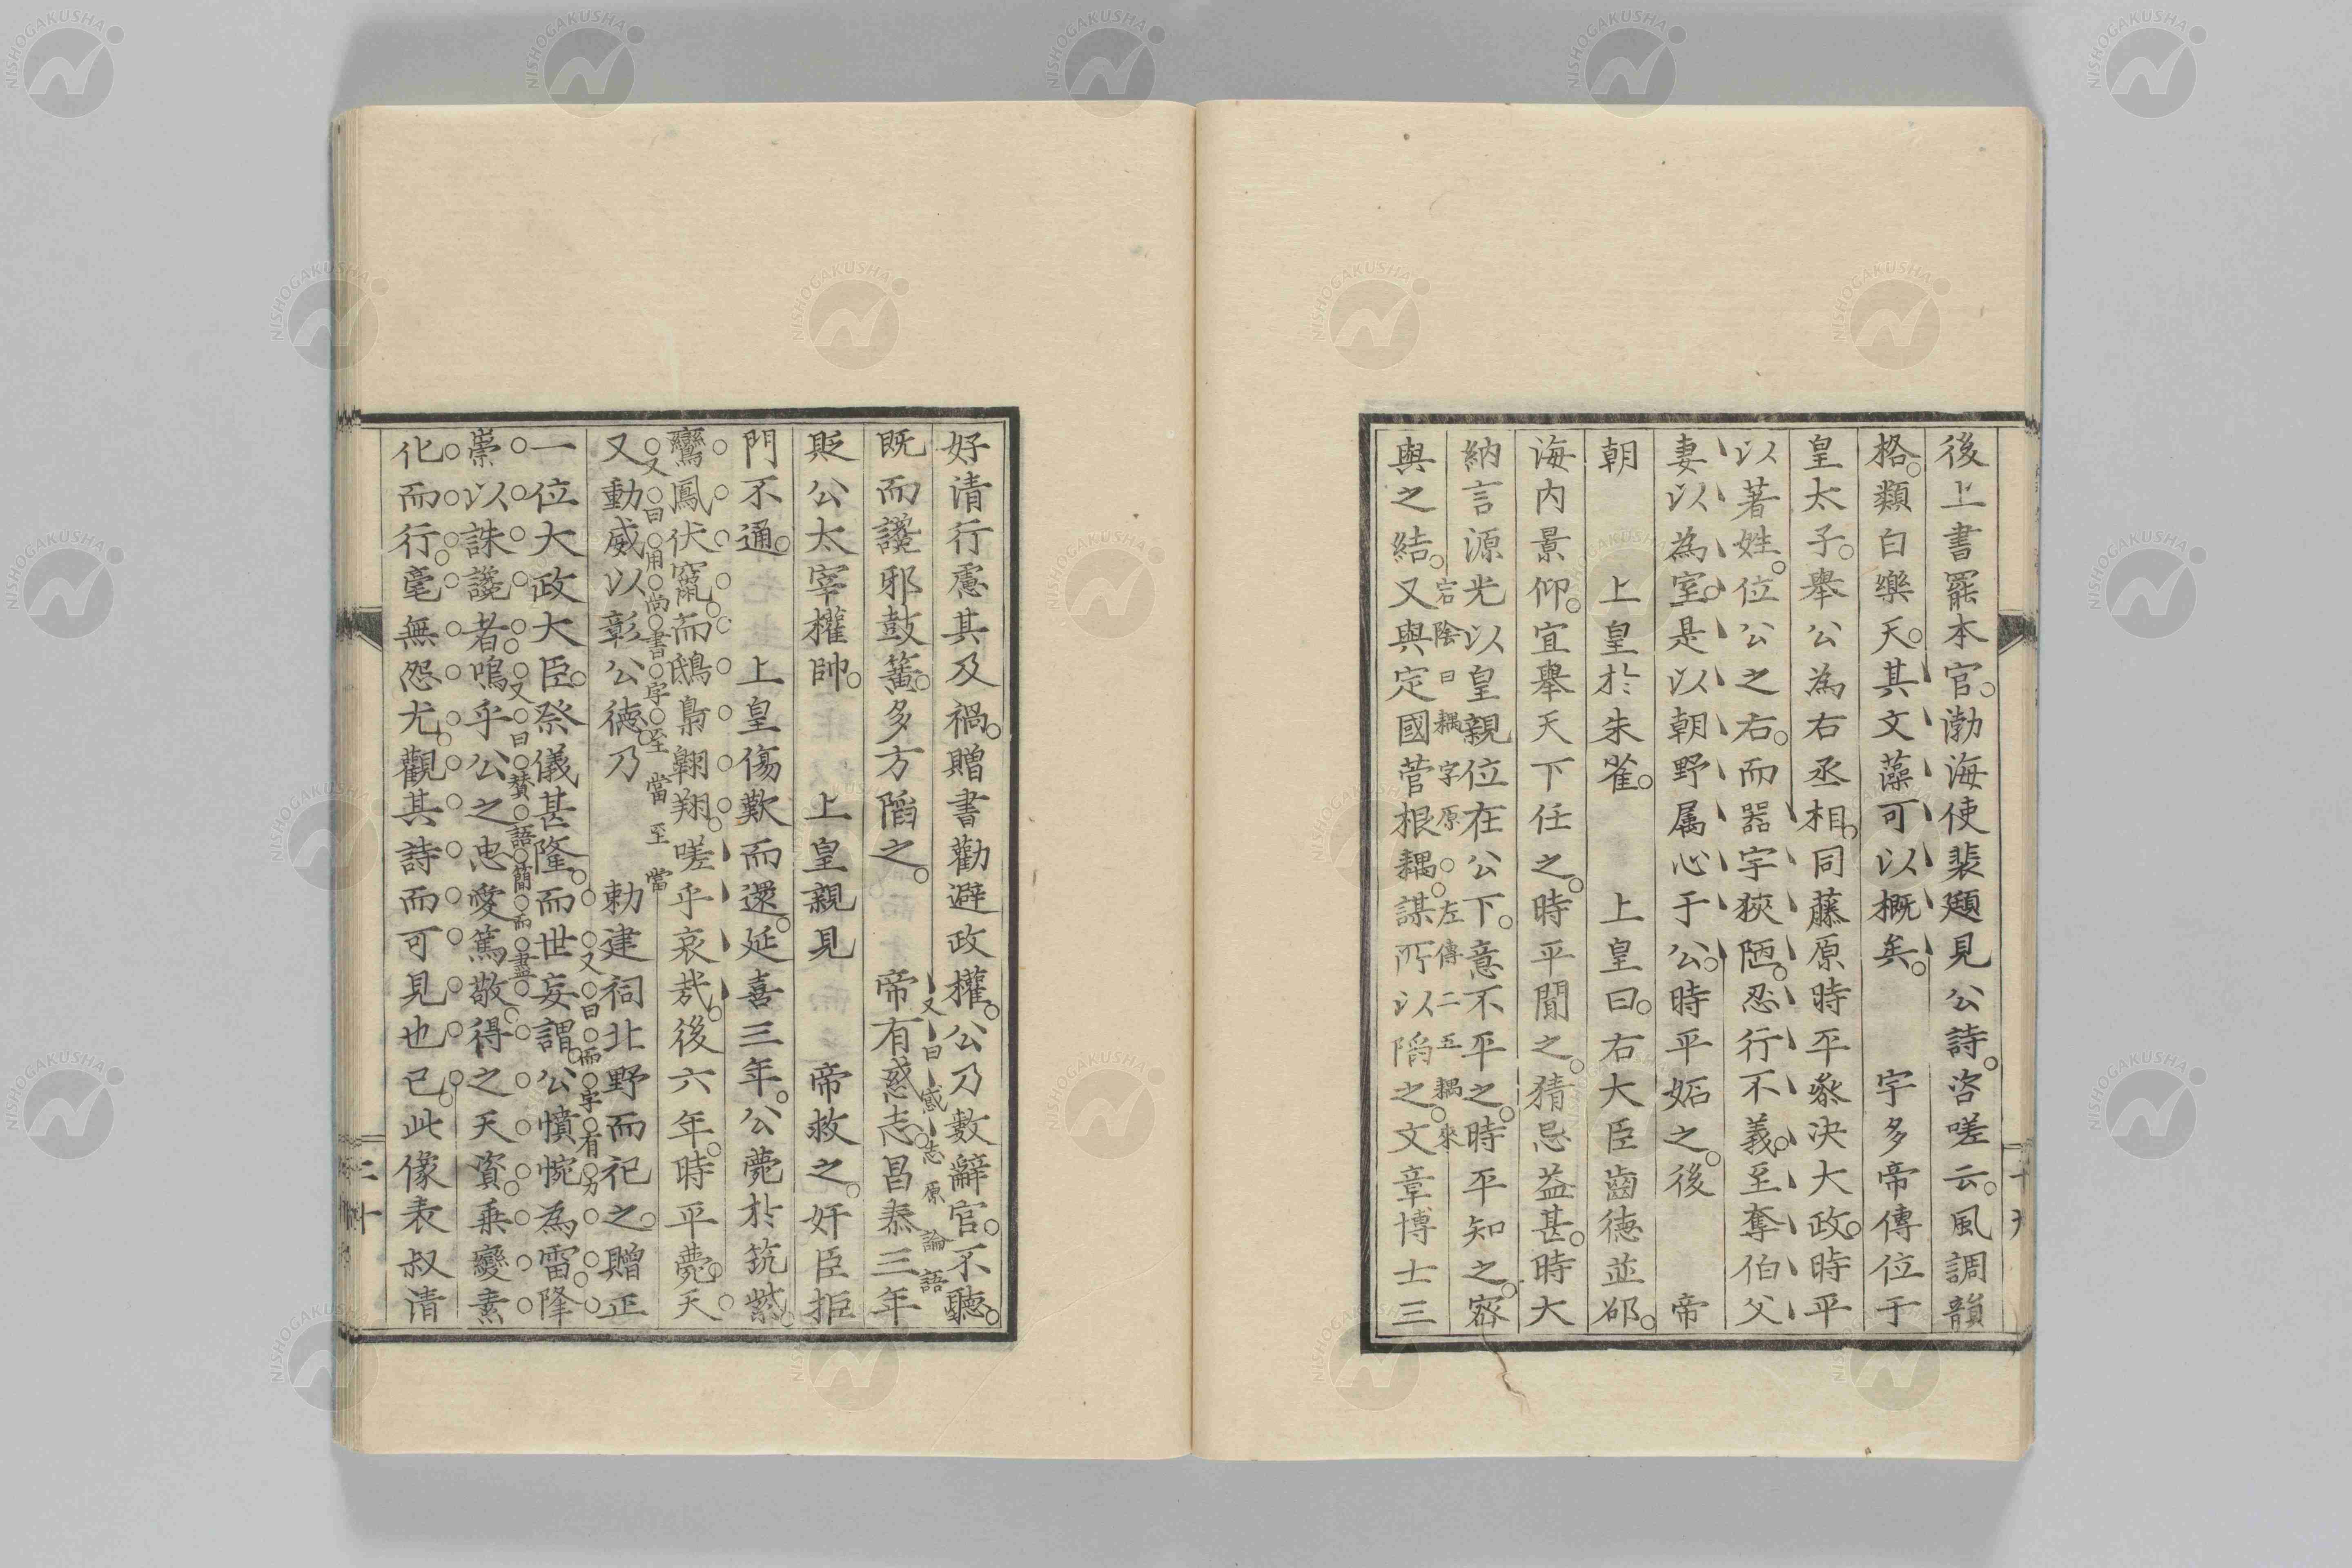 後上書罷本官渤海使裴頲見公詩咨嗟云風調韻
格類白樂天其文藻可以概矣　宇多帝傳位于
皇太子舉公為右丞相同藤原時平叅決大政時平
以著姓位公之右而器宇狹陋忍行不義至奪伯父
妻以為室是以朝野属心于公時平妬之後　帝
朝　上皇於朱雀　上皇曰右大臣齒德並卲
海内景仰宜舉天下任之時平聞之猜忌益甚時大
納言源光以皇親位在公下意不平之時平知之密
宕陰曰耦字原左傳二五耦來
與之結又與定國菅根耦謀所以陷之文章博士三
十九
好清行慮其及禍贈書勸避政權公乃數辭官不聽
又曰惑志原論語
既而讒邪鼓簧多方陷之　帝有惑志昌泰三年
貶公太宰權帥　上皇親見　帝救之奸臣拒
門不通　上皇傷歎而還延喜三年公薨於筑紫
鸞鳳伏竄而鴟梟翱翔嗟乎哀哉後六年時平薨天
又曰用尚書字至當至當
又動威以彰公德乃　勅建祠北野而祀之贈正
又曰而字有力
一位大政大臣祭儀甚隆而世妄謂公憤惋為雷降
又曰贊語簡而盡
祟以誅讒者嗚乎公之忠愛篤敬得之天資乗變素
化而行毫無怨尤觀其詩而可見也已此像表叔清
二十